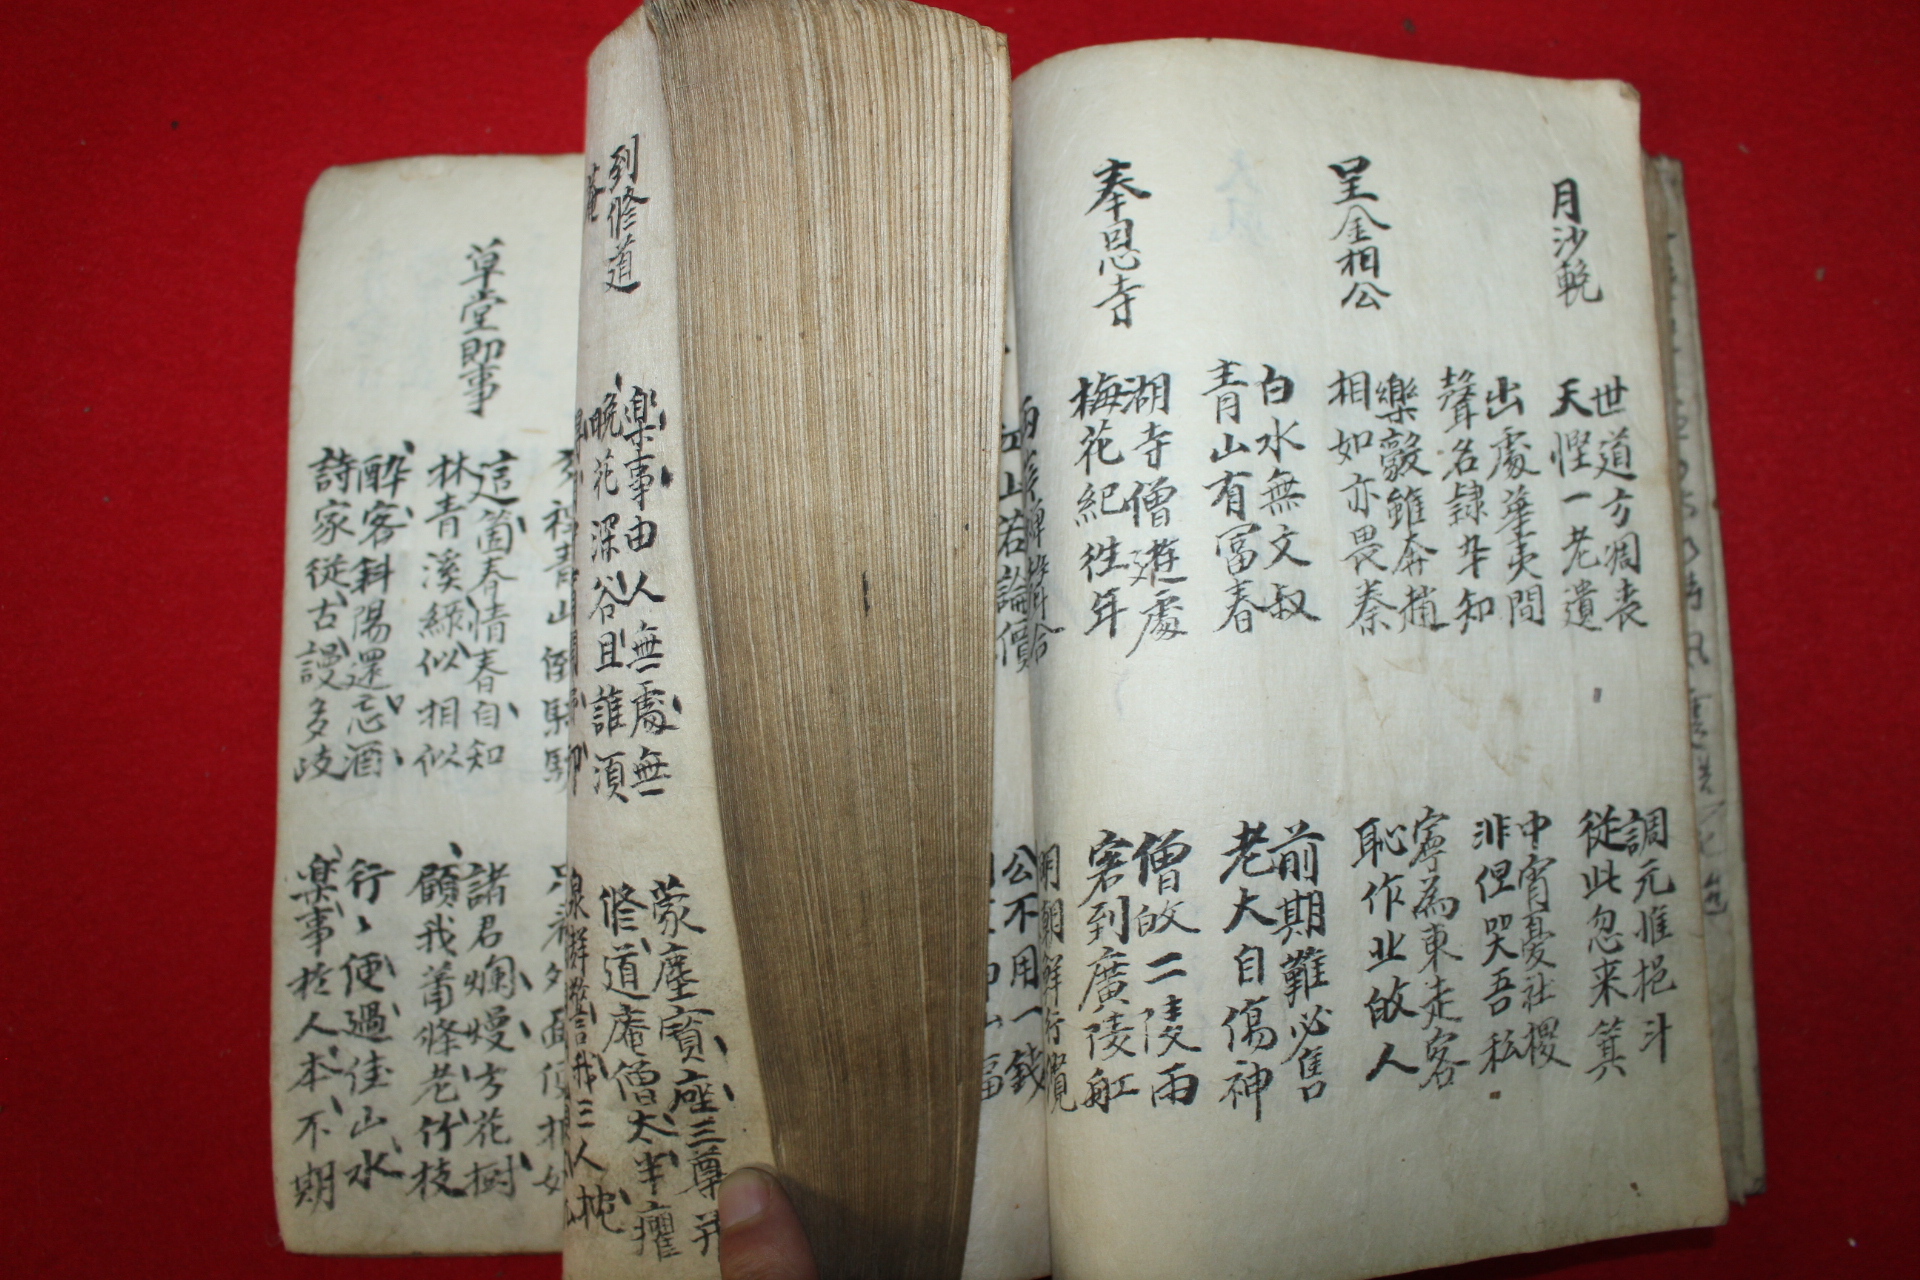 月沙輓
世道方凋喪 調元惟挹斗
天慳一老遺 從此忽来箕
出處華夷間 中宵憂社稷
聲名隷卒知 非但哭吾私
呈金相公
樂毅雖奔趙 寧為東走客
相如亦畏秦 恥作北敀人
白水無文叔 前期難必售
青山有富春 老大自傷神
奉恩寺
湖寺僧遊處 僧敀二陵雨
梅花紀往年 客到廣陵舡
明朝鮮行
山若論價 公不用一錢
到修道
菴
樂事由人無處無 蒙塵寳座三尊
晩花深谷且誰須 修道庵僧太半癯
三人枕
青山倒
草堂即事
這箇春情春自知 諸君爛熳方花樹
林青溪綠似相似 顧我莆條老竹枝
醉客斜陽還忘酒 行〻便過佳山水
詩家從古謾多歧 樂事於人本不期